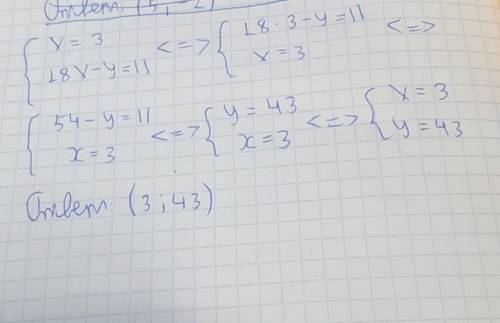 Ответ: (5; -2)
{ x = 3 <=> { 18 · 3 - y = 11 <=>
{ 18x - y = 11 { x = 3
{ 54 - y = 11 <=> { y = 43 <=> { x = 3
{ x = 3 { x = 3 { y = 43
Ответ: (3; 43)